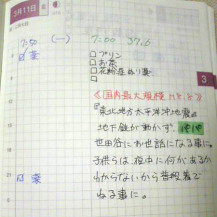 3月11日 金
7:50 (一) 7:00 37.6
□プリン
□お茶
□花粉症ぬり薬
□
3
《国内最大規模 M8.8》
『東北地方太平洋沖地震』
地下鉄が動かず
世田谷にお世話になる事に。
子供らは夜中に何かあるか
わからないから普段着で
ねる事に。